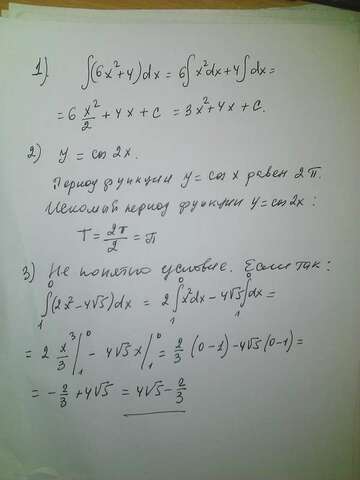 1). ∫(6x²+4)dx = 6∫x²dx+4∫dx =
= 6 x²/2 + 4x + c = 3x²+4x+c.
2) y = cos 2x.
Период функции y = cos x равен 2π.
Искомый период функции y = cos2x:
T = 2π/2 = π
3) Не понятно условие. Если так:
∫₁⁰(2x²-4√5)dx = 2∫₁⁰x²dx-4√5∫₁⁰dx =
= 2 x³/3 |₁⁰ - 4√5 x |₁⁰ = 2/3 (0-1)-4√5(0-1) =
= -2/3 + 4√5 = 4√5 - 2/3